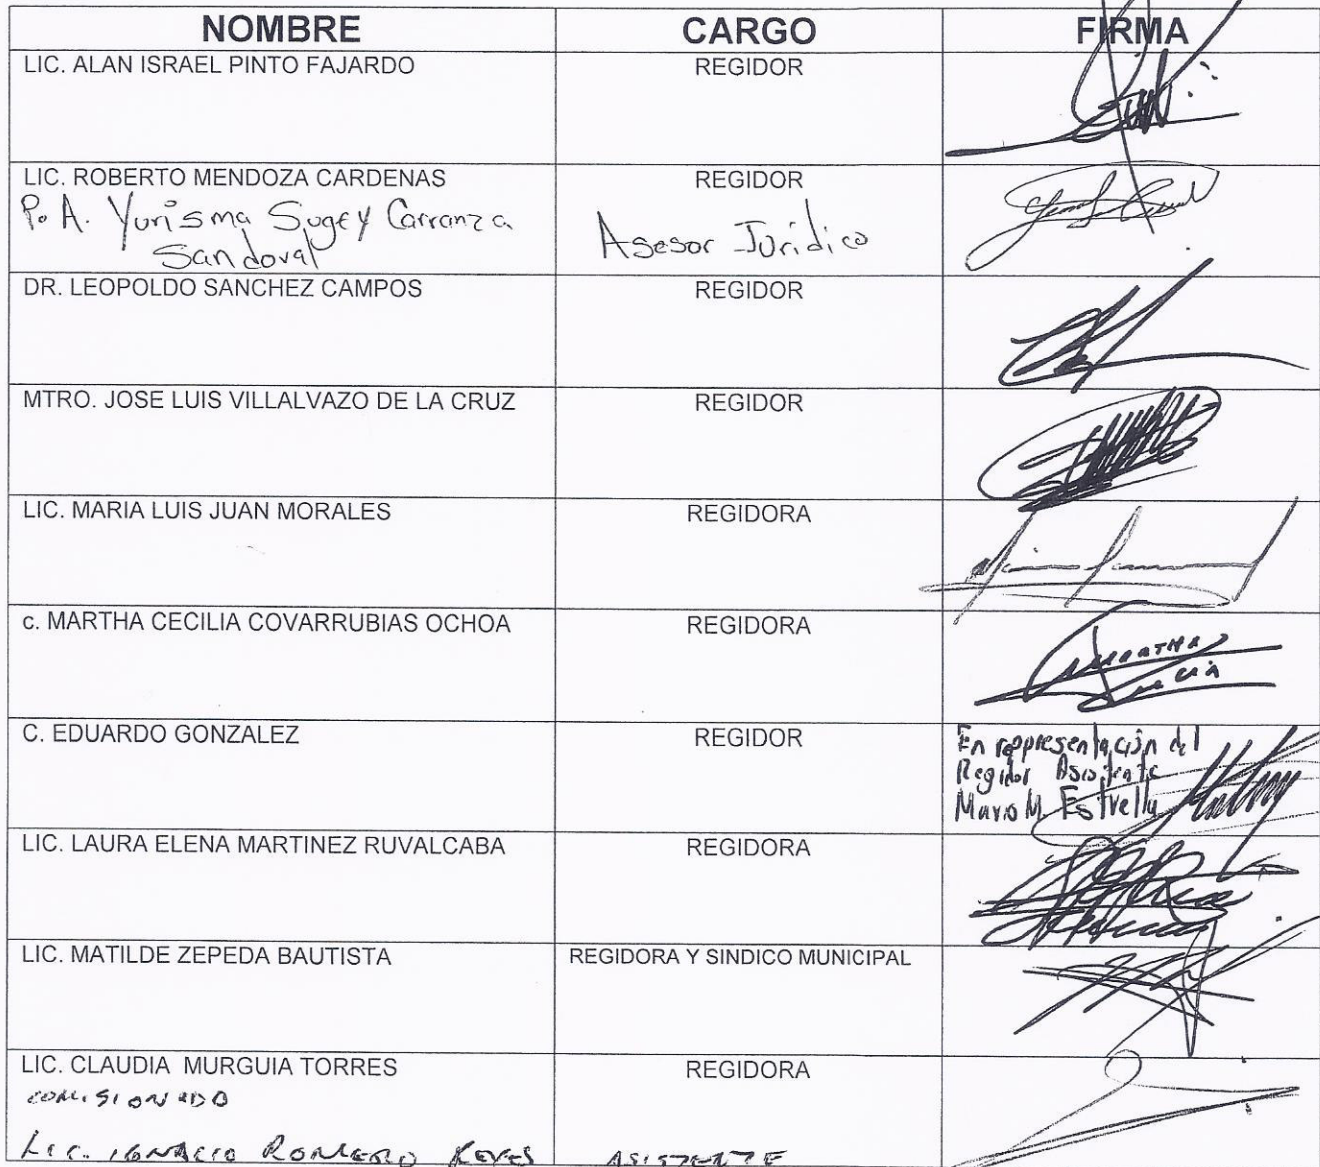 NOMBRE CARGO FIRMA
LIC. ALAN ISRAEL PINTO FAJARDO REGIDOR
LIC. ROBERTO MENDOZA CARDENAS REGIDOR
P. A. Yurisma Sugey Carranza
Sandoval
Asesor Jurídico
DR. LEOPOLDO SANCHEZ CAMPOS REGIDOR
MTRO. JOSE LUIS VILLALVAZO DE LA CRUZ REGIDOR
LIC. MARIA LUIS JUAN MORALES REGIDORA
c. MARTHA CECILIA COVARRUBIAS OCHOA REGIDORA
MARTHA
C. EDUARDO GONZALEZ REGIDOR
En reppresentación del
Regidor Asistente
Mario M. Estrella
LIC. LAURA ELENA MARTINEZ RUVALCABA REGIDORA
LIC. MATILDE ZEPEDA BAUTISTA REGIDORA Y SINDICO MUNICIPAL
LIC. CLAUDIA MURGUIA TORRES REGIDORA
COMISIONADO
LIC. IGNACIO ROMERO REYES ASISTENTE